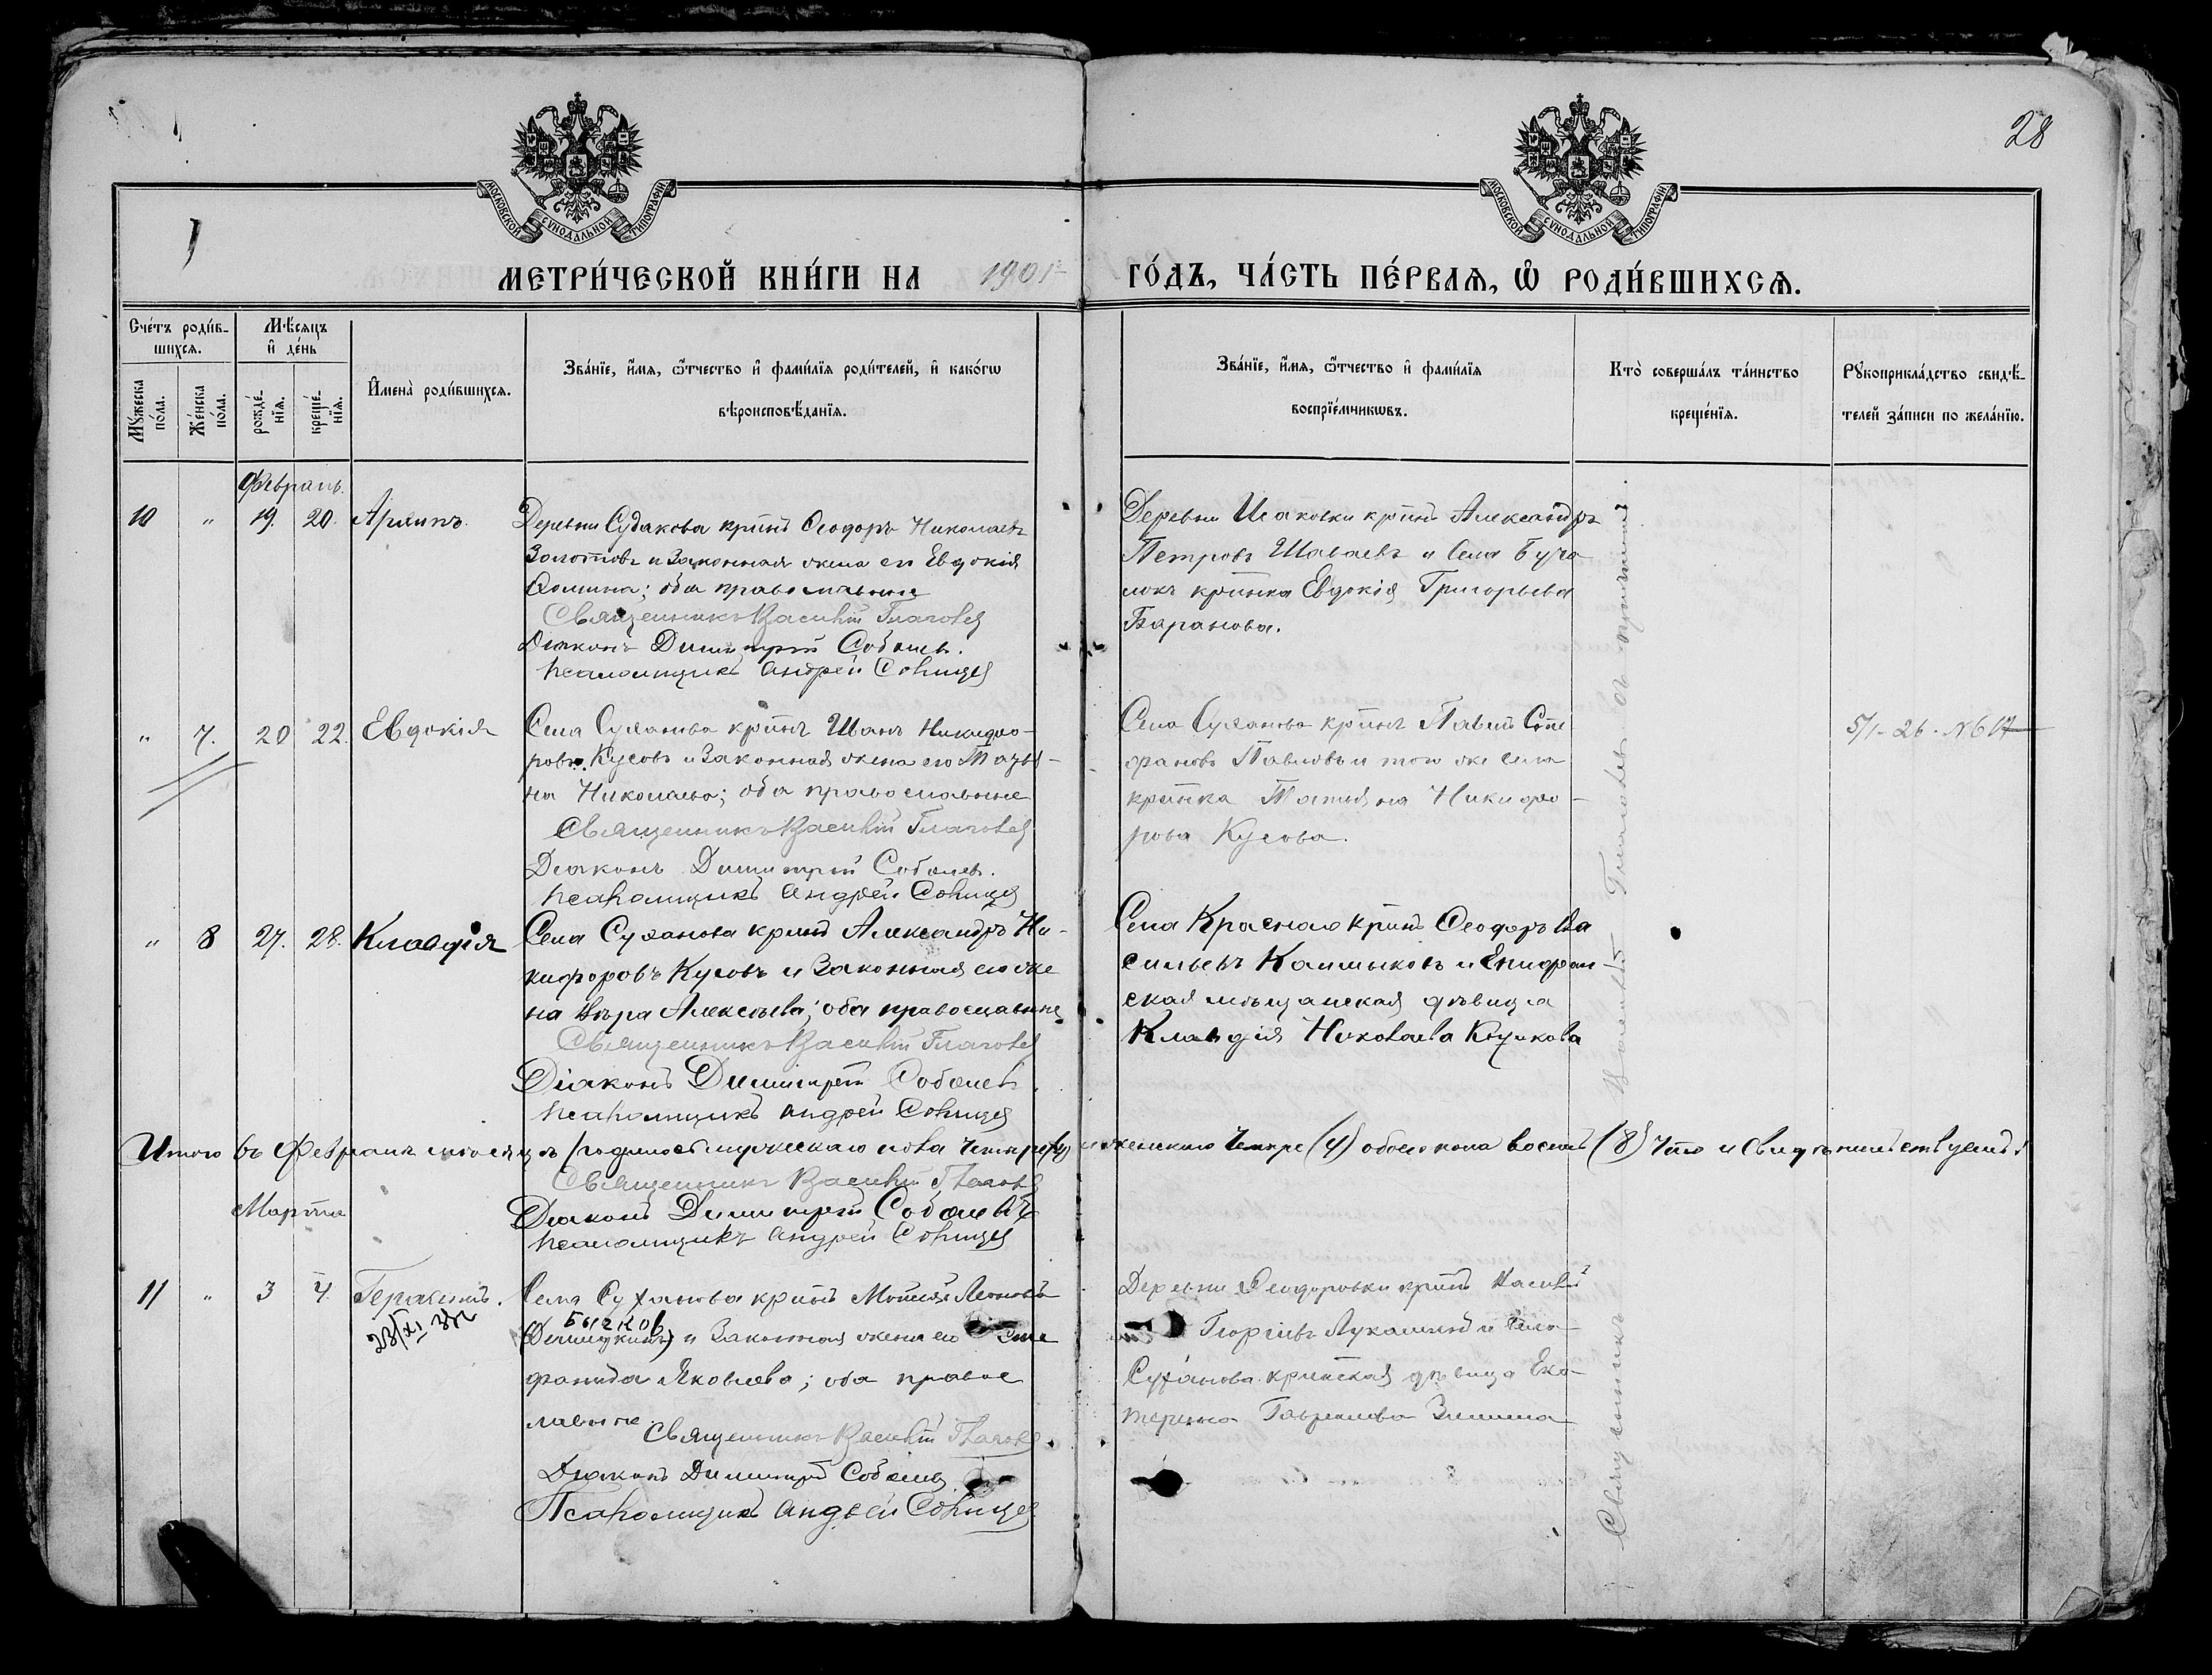 28
МОСКОВСКОЙ СѴНОДАЛЬНОЙ ТИПОГРАФІИ
МОСКОВСКОЙ СѴНОДАЛЬНОЙ ТИПОГРАФІИ
МЕТРИ́ЧЕСКОЙ КНИ́ГИ НА 1901 ГО́ДЪ, ЧА́СТЬ ПЕ́РВАѦ, Ѡ҆ РОДИ́ВШИХСѦ.
Сче́тъ роди́в-
шихсѧ.
Мꙋ́жеска по́ла.
Же́нска по́ла.
Мѣ́сѧцъ
и҆ де́нь
рожде́нїѧ.
креще́нїѧ.
И҆мена̀ роди́вшихсѧ.
Зва́нїе, и҆́мѧ, ѻ҆́тчество и҆ фами́лїѧ роди́телей, и҆ како́гѡ
вѣроисповѣ́данїѧ.
Зва́нїе, и҆́мѧ, ѻ҆́тчество и҆ фами́лїѧ
воспрїе́мникѡвъ.
Кто̀ соверша́лъ та́инство
креще́нїѧ.
Рꙋкоприкла́дство свидѣ́-
телей за́писи по жела́нїю.
Февраль.
10 " 19. 20. Архипъ.
Деревни Судакова кр͠инъ Ѳеодоръ Николаевъ
Золотовъ и законная жена его Евдокія
Ѳомина; оба православные
Священникъ Василій Глаголев
Діаконъ Димитрій Соболевъ.
Псаломщикъ Андрей Солнцев
Деревни Исаковки кр͠инъ Александръ
Петровъ Шаваевъ и Села Буча
локъ кр͠инка Евдокія Григорьева
Баранова.
" 7. 20 22. Евдокія
Села Суханова кр͠инъ Иванъ Никифо-
ровъ Кусовъ и законная жена его Татья-
на Николаева; оба православные
Священникъ Василій Глаголев
Діаконъ Димитрій Соболевъ.
Псаломщикъ Андрей Солнцев
Села Суханова кр͠инъ Павелъ Сте
фановъ Павловъ и того же села
кр͠инка Татіяна Никифо-
рова Кусова.
5/I-26. N 617
" 8 27. 28. Клавдія
Села Суханова кр͠инъ Александръ Ни-
кифоровъ Кусовъ и законная его же
на Вѣра Алексѣева; оба православные
Священникъ Василій Глаголев
Діаконъ Димитрій Соболевъ.
Псаломщикъ Андрей Солнцев
Села Краснаго кр͠инъ Ѳеодоръ Ва
сильевъ Калмыковъ и Епифан-
ская мѣщанская дѣвица
Клавдія Николаева
Итого въ Февралѣ мѣсяцѣ родилось мужескаго пола четыре (4) женскаго четыре (4) обоего пола восемь (8) Что и свидѣтельствуемъ:
Священникъ Василій Глаголев
Діаконъ Димитрій Соболевъ
Псаломщикъ Андрей Солнцев
Мартъ
11 " 3 4. Герасимъ.
23/XI 38г
Села Суханова кр͠инъ Моисей Леоновъ
Бычков
и законная жена его Сте
фанида Яковлева; оба правос
лавные
Священникъ Василій Глаголев
Діаконъ Димитрій Соболев
Псаломщикъ Андрей Солнцев
Деревни Ѳеодоровки кр͠инъ Василій
Георгіевъ Лукашинъ и Села
Суханова кр͠инская дѣвица Ека-
терина Гавриилова Зимина
Священникъ Василій Глаголевъ съ причтомъ.